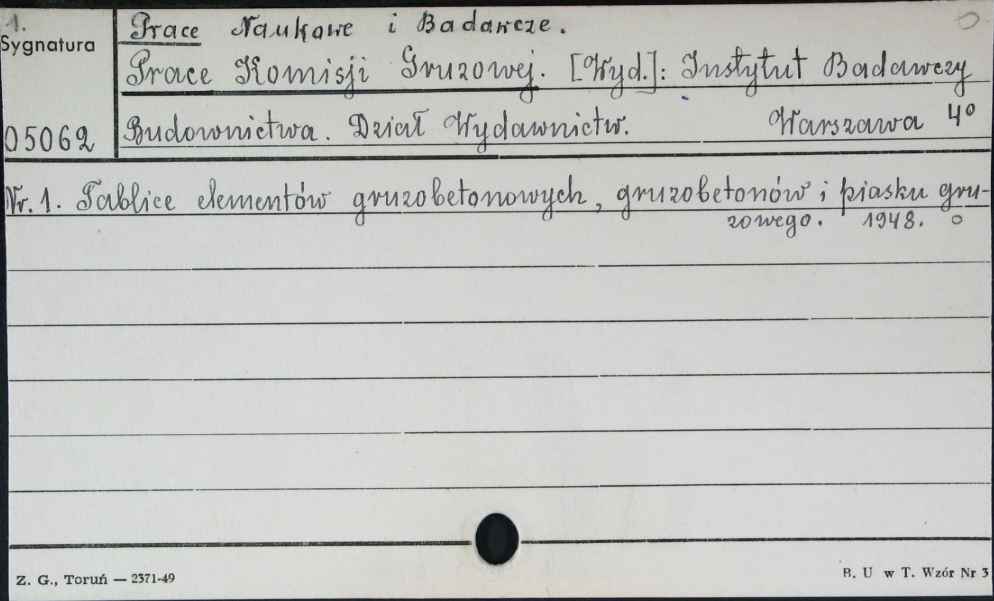 1.
Prace Naukowe i Badawcze.
Sygnatura
Prace Komisji Gruzowej. [Wyd.]: Instytut Badawczy
05062
Budownictwa. Dział Wydawnictw. Warszawa 4°
Nr. 1. Tablice elementów gruzobetonowych, gruzobetonów i piasku gru-
zowego. 1948. o
Z. G., Toruń — 2371-49
B. U w T. Wzór Nr 3